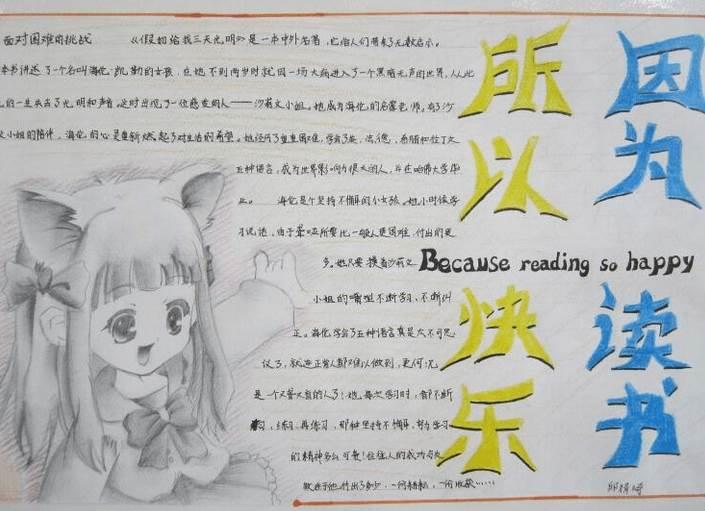 面对困难的挑战 《假如给我三天光明》是一本中外名著，它给人们带来了无数启示。
本书讲述了一个名叫海伦·凯勒的女孩，在她不到两岁时就因一场大病进入了一个黑暗无声的世界，从此
的一生失去了光明和声音。这时出现了一位慈爱的人——沙莉文小姐。她成为海伦的启蒙老师，有了沙
文小姐的陪伴，海伦的心里重新燃起了对生活的希望。她经历了重重困难，学会了英、法、德、希腊和拉丁文
五种语言，成为世界影响力很大的人，并在哈佛大学毕
业。 海伦是个坚持不懈的小女孩。她小时候学
习说话，由于要比一般人更困难，付出的更
多。她只要摸着沙莉文
小姐的嘴型不断学习、不断纠
正。海伦学会了五种语言真是太不可思
议了，就连正常人都难以做到，更何况
是一个又聋又盲的人了！她每次学习时，都不断
练习、再练习，那种坚持不懈、努力学习
的精神多么可贵！往往人的成功与失
败在于他付出了多少，一份耕耘，一份收获……
因为
读书
所以
快乐
Because reading so happy